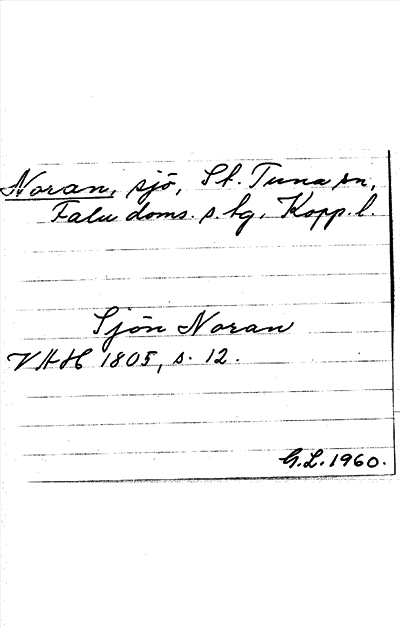 Noran, sjö, St. Tuna sn,
Falu doms. s. tg, Kopp. l.
Sjön Noran
VHH 1805, s. 12.
G.L. 1960.